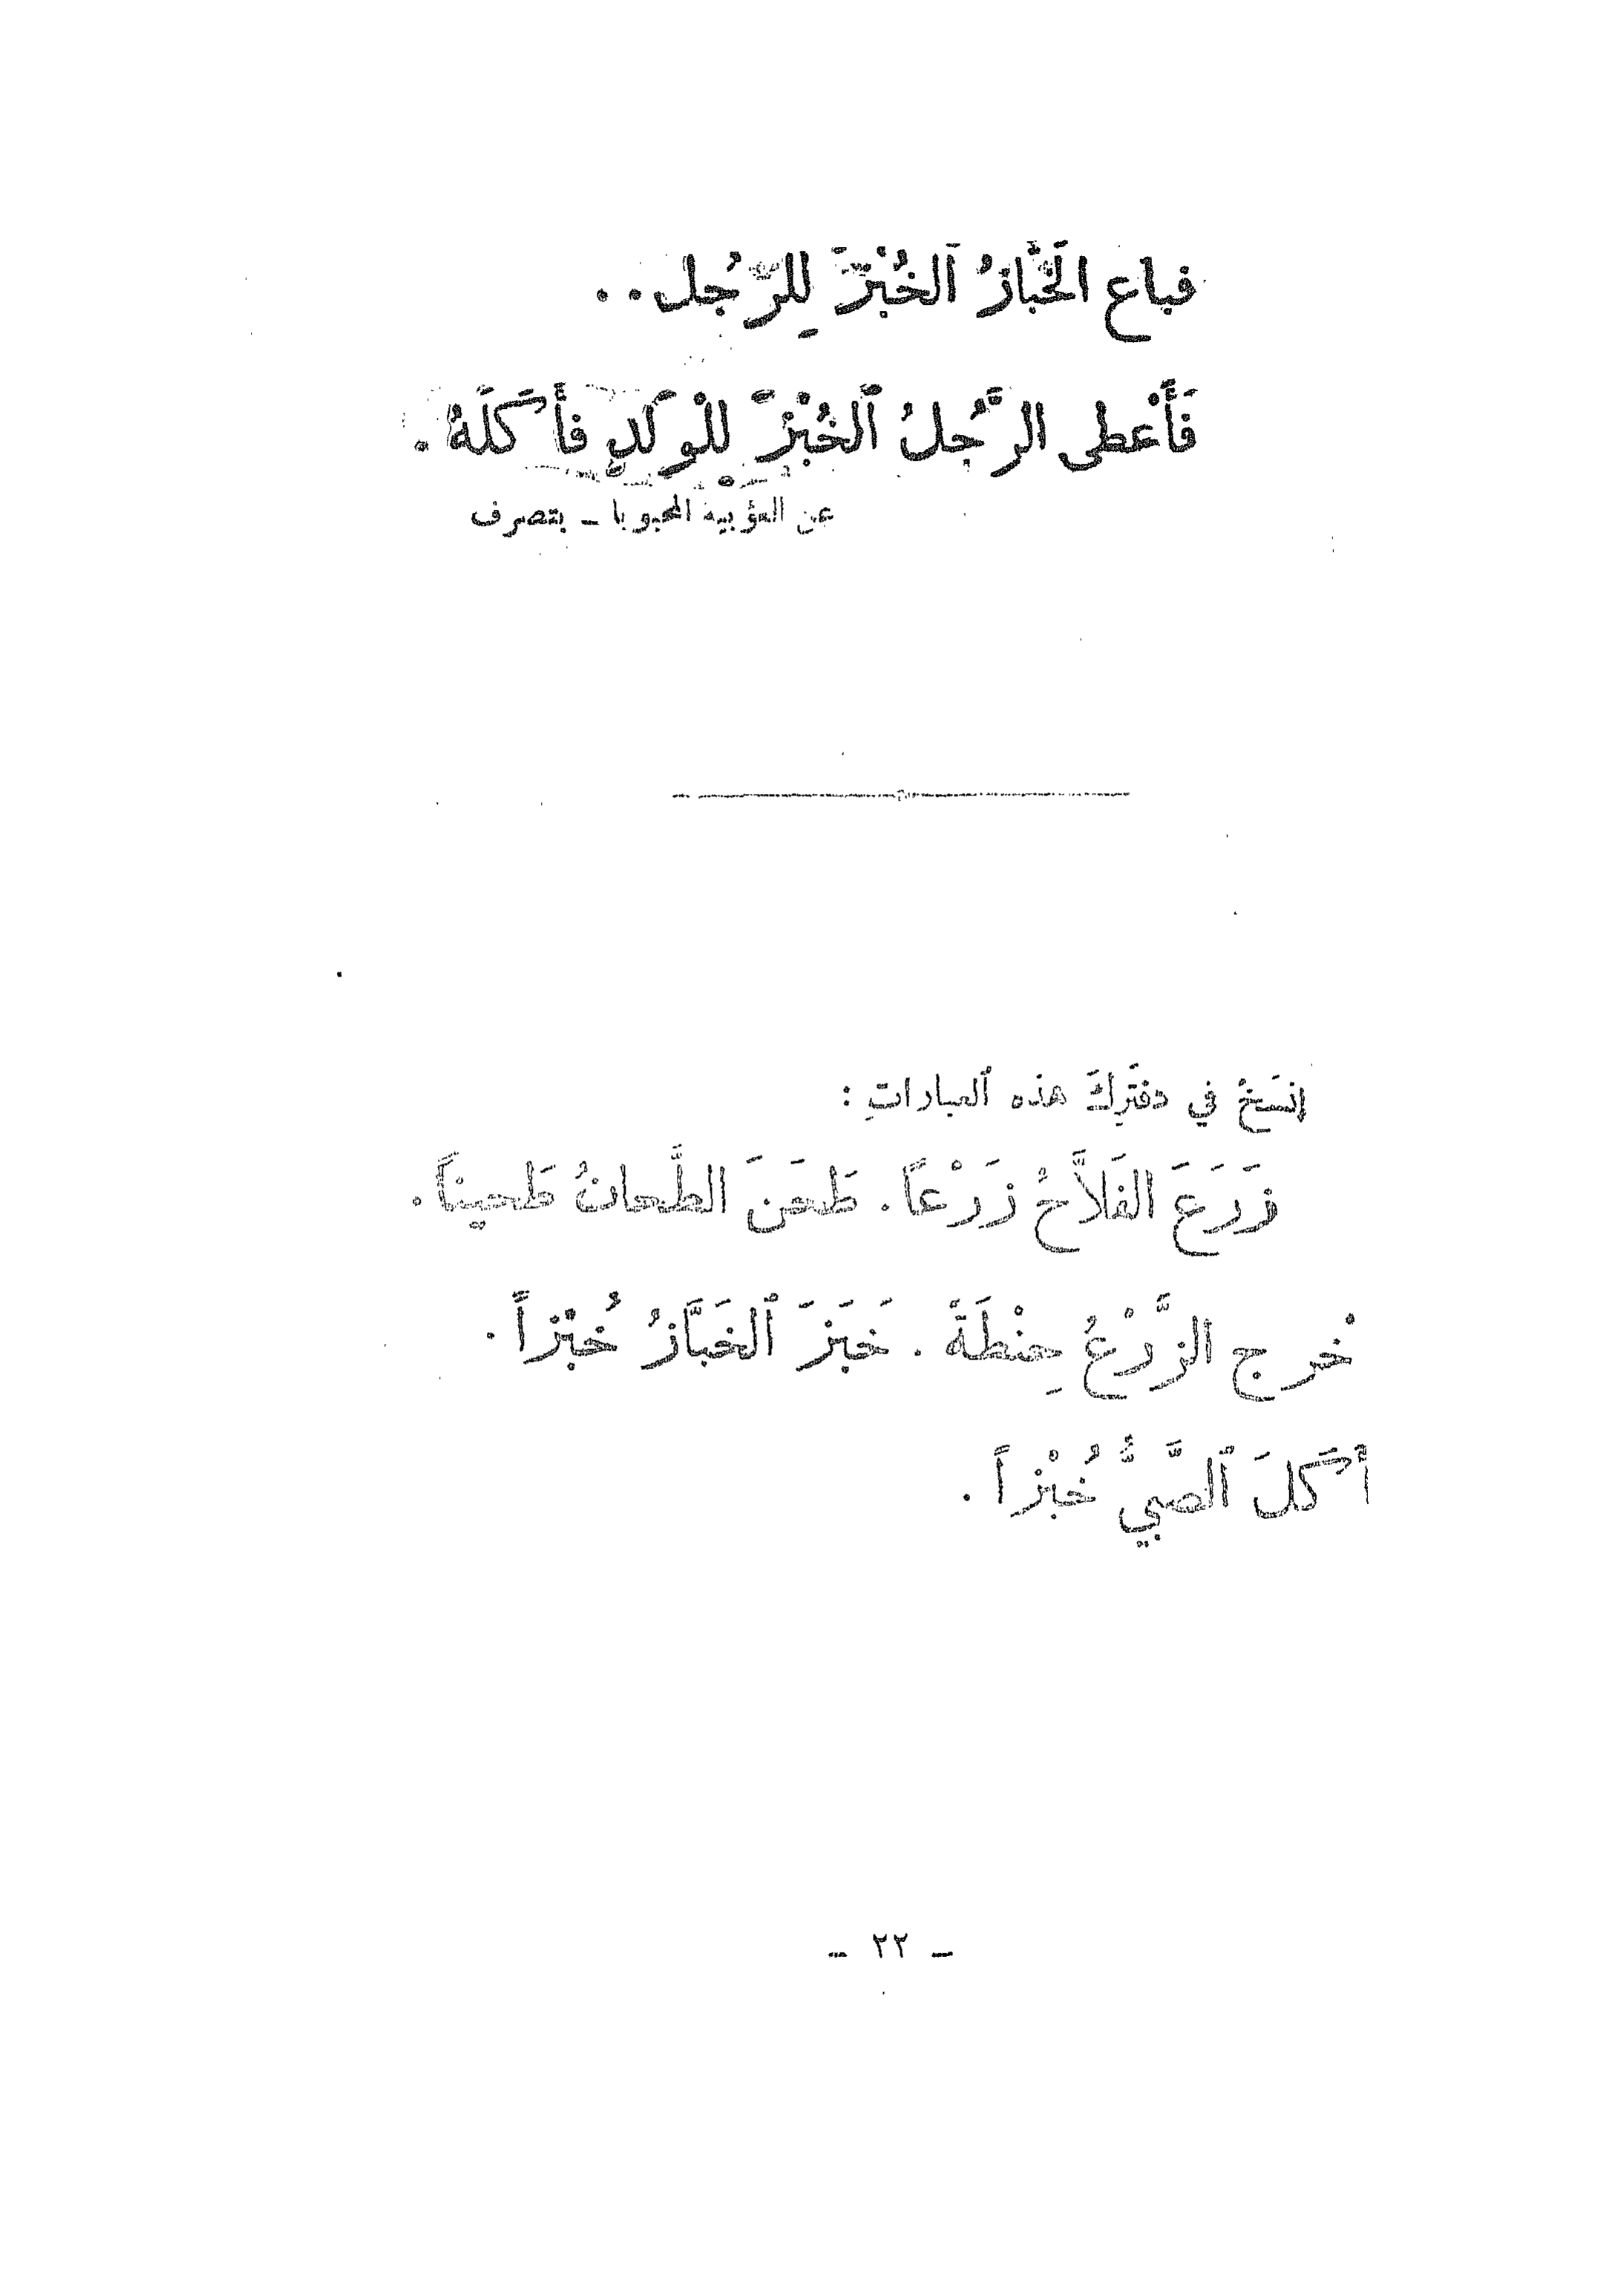 فباع الخَبَّازُ ٱلخُبْزَ لِلرَّجُلِ..
فَأَعْطى الرَّجُلُ ٱلخُبْزَ لِلْوَلَدِ فأَكَلَهُ.
عن المحبوبا - بتصرف
إِنسَخْ في دفتَرِكَ هذه ٱلعباراتِ :
زَرَعَ الفَلاَّحُ زَرْعاً. طَحَنَ الطَّحانُ طَحيناً.
خْرج الزَّرْعُ حِنْطَةً . خَبَزَ ٱلخَبَّازُ خُبْزاً.
أَكَلَ ٱلصَّبيُّ خُبْزاً .
- ٢٢ -